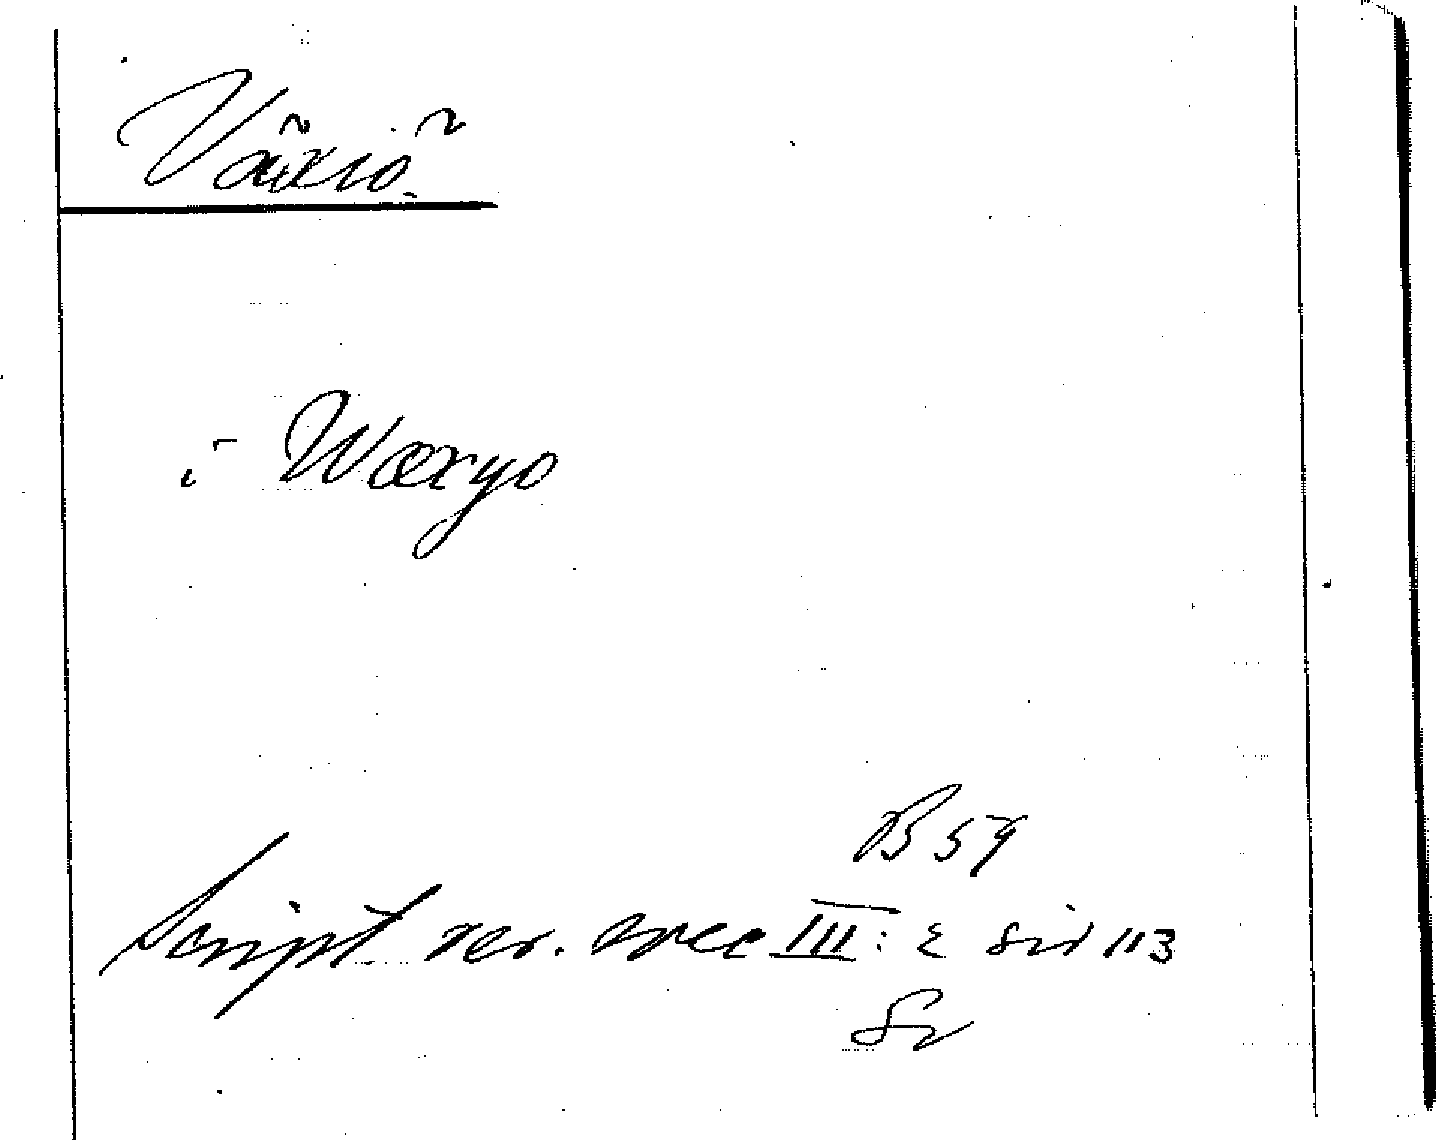 Växiö
i Wæxyo
B 59
Script rer. svec III: 2 sid 113